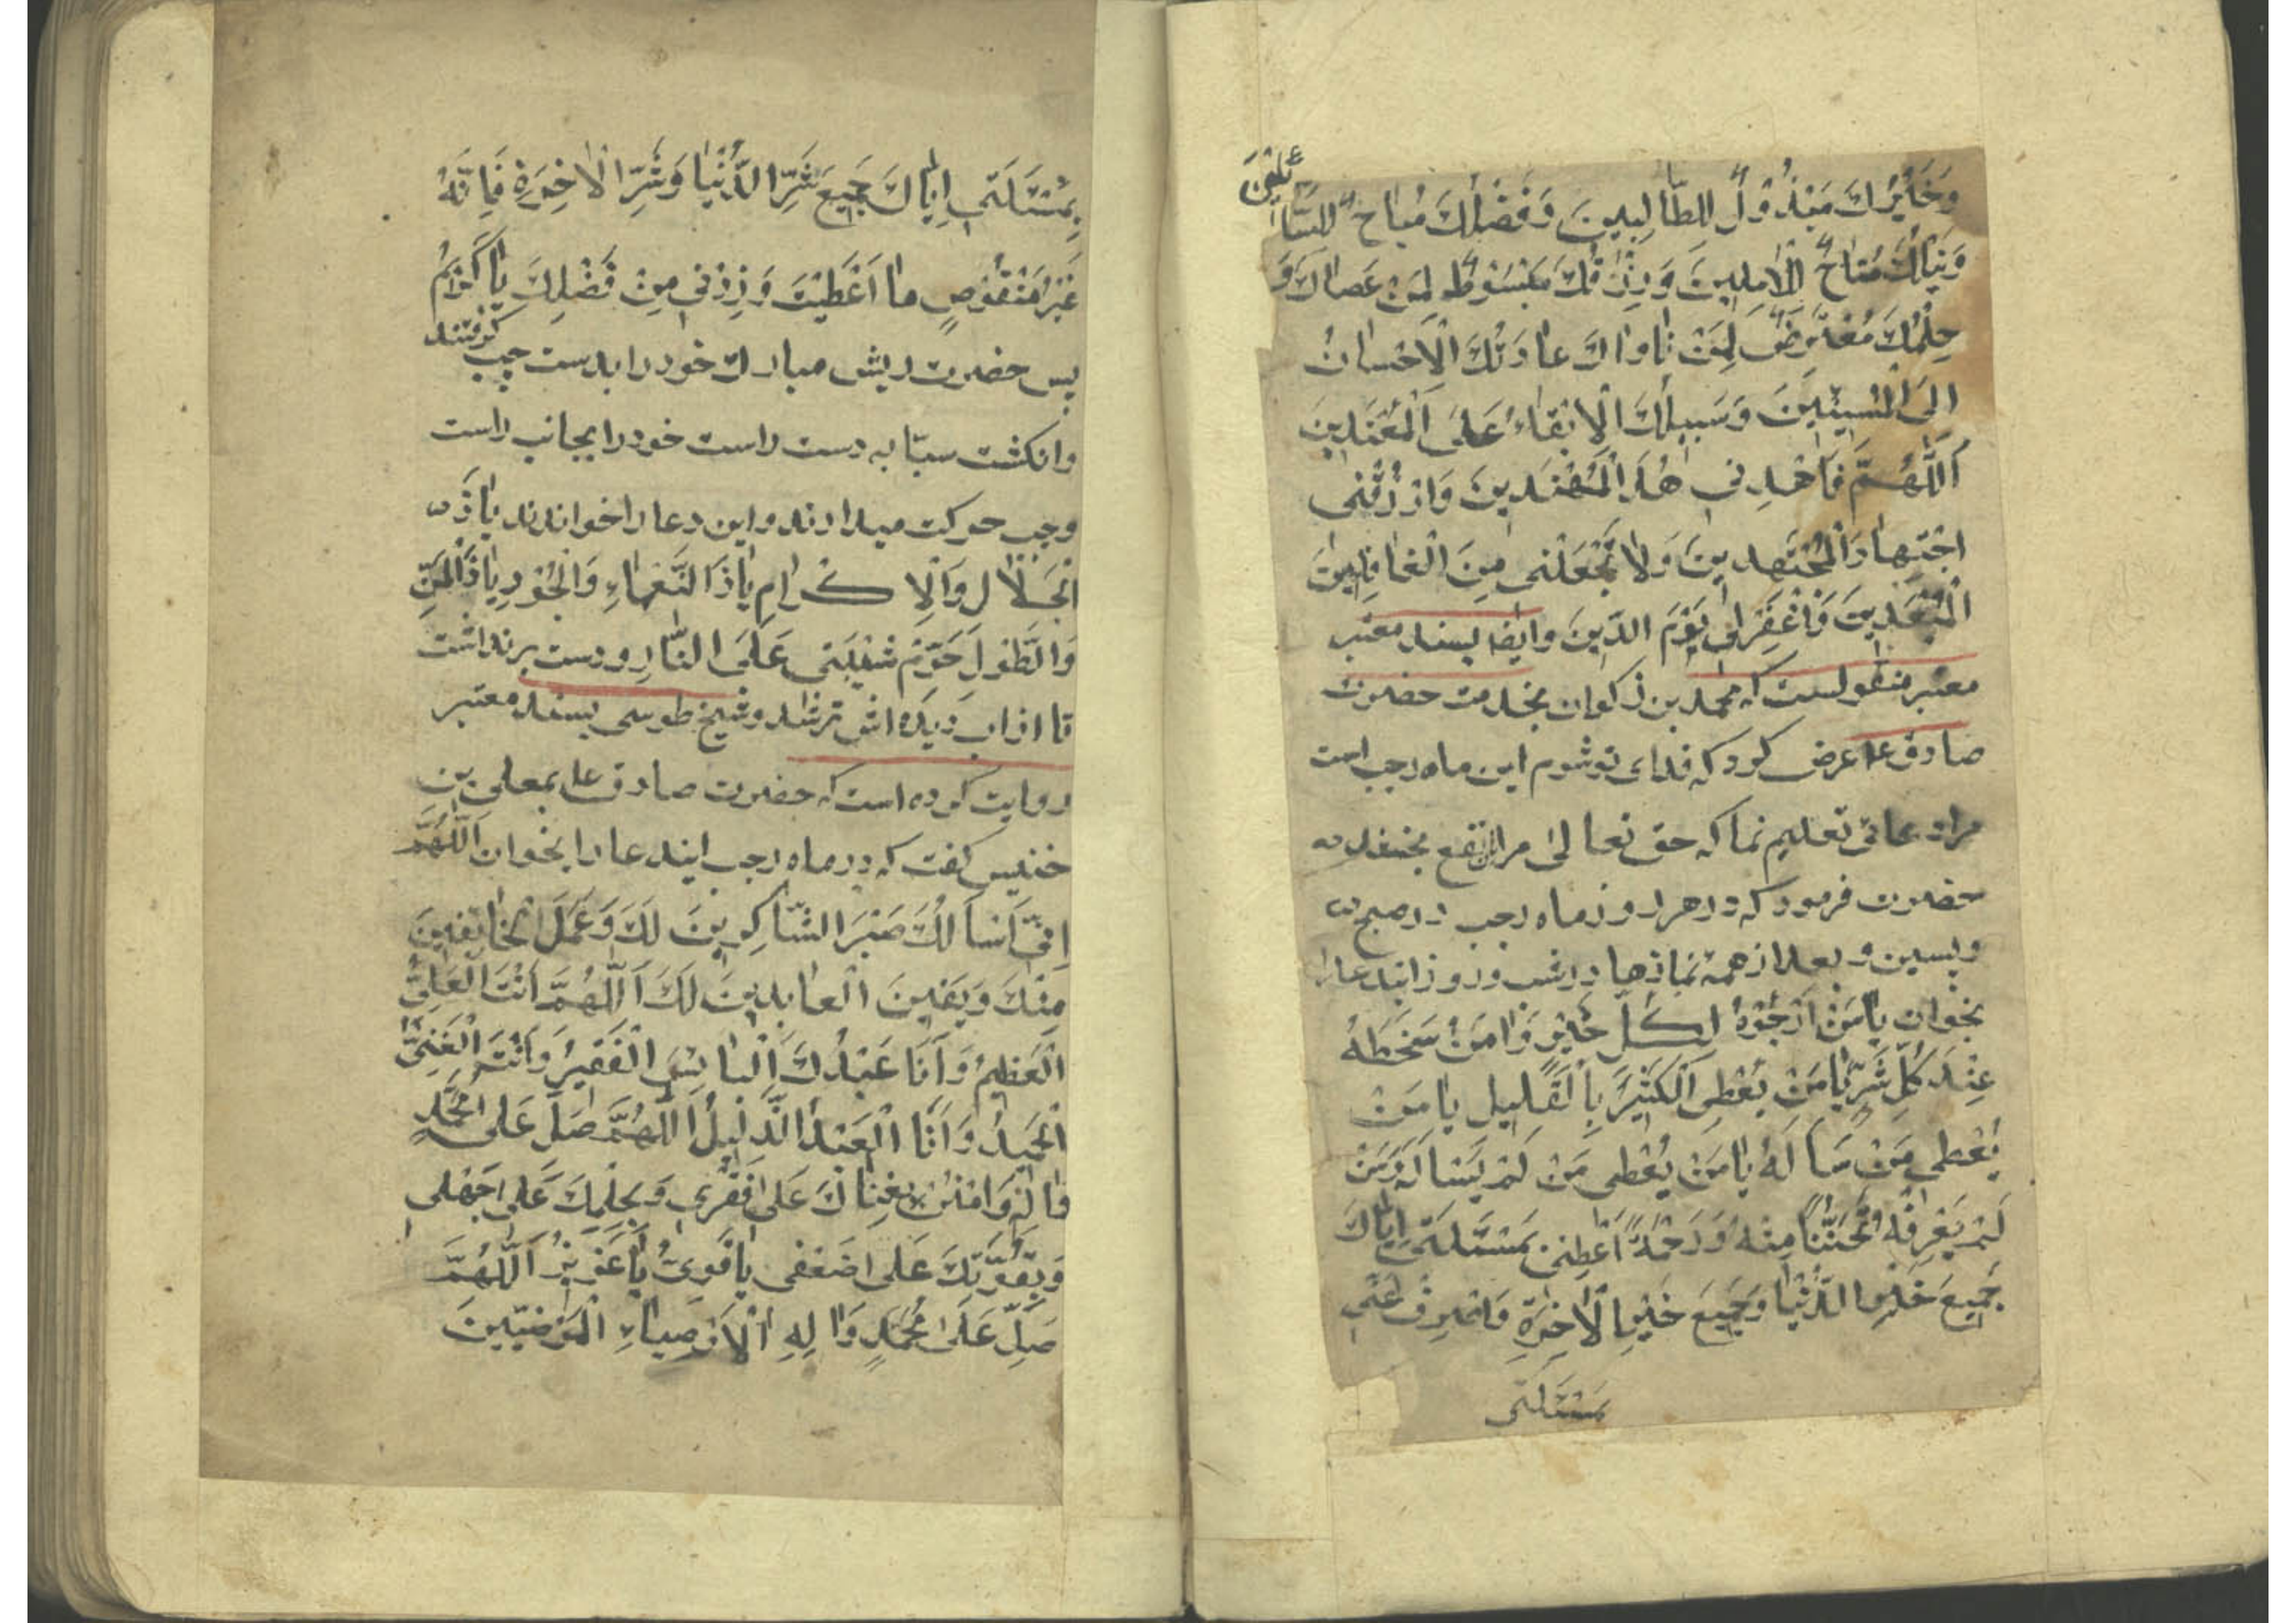 وَخَيْرُكَ مَبْذُوْلٌ لِلطّالِبينَ وَفَضْلُكَ مُباحٌ لِلسّا
ئلينَ
وَنَيْلُكَ مُتاحٌ لِلْامِلينَ وَرِزْقُكَ مَبْسُوْطٌ لِمَنْ عَصاكَ وَ
حِلْمُكَ مُعْتَرِضٌ لِمَنْ ناواكَ عادَتُكَ الْاِحْسانُ
اِلَى الْمُسيئينَ وَسَبيلُكَ الْاِبْقاءُ عَلَى الْمُعْتَدينَ
اَللّهُمَّ فَاهْدِنى هُدَ الْمُهْتَدينَ وَارْزُقْنى
اجْتِهادَ الْمُجْتَهِدينَ وَلا تَجْعَلْنى مِنَ الْغافِلينَ
الْمُبْعَدينَ وَاغْفِرْلى يَوْمَ الدّينَ وايضا بسند معتبر
معتبر منقولست كه محمد بن ذكوان بخدمت حضرت
صادق ع عرض كرد كه فداى تو شوم اين ماه رجب است
مرا دعائى تعليم نما كه حق تعالى مرا نفع بخشد
حضرت فرمود كه در هر روز ماه رجب در صبح
وپسين و بعد از همۀ نمازها در شب و روز ايندعا را
بخوان يا مَنْ اَرْجُوْهُ لِكُلِّ خَيْرٍ وَامَنُ سَخَطَهُ
عِنْدَ كُلِّ شَرٍّ يا مَنْ يُعْطِى الْكَثيرَ بِالْقَليلِ يا مَنْ
يُعْطى مَنْ سَاَلَهُ يا مَنْ يُعْطى مَنْ لَمْ يَسْالَهُ وَمَنْ
لَمْ يَعْرِفْهُ تَحَنُّناً مِنْهُ وَرَحْمَةً اَعْطِنى بمَسْئَلَتى اِيّاكَ
جَميعَ خَيْرِ الدُّنْيا وَجَميعَ خَيْرِ الْاخِرَةِ وَاصْرِفْ عَنّى
بمَسْئَلَتى
بِمَسْئَلَتى اِيّاكَ جَميعَ شَرِّ الدُّنْيا وَشَرِّ الْاخِرَةِ فَاِنَّهُ
غَيْرُ مَنْقُوْصٍ ما اَعْطَيْتَ وَزِدْنى مِنْ فَضْلِكَ يا كَرِيْمُ
پس حضرت ريش مبارك خود را بدست چپ گرفتند
وانكشت سبّابه دست راست خود را بجانب راست
وچپ حركت ميدادند واين دعا را خواندند يا ذَا
الْجَلالِ وَالْاِكْرامِ يا ذَا النَّعْماءِ وَالْجُوْدِ يا ذَا الْمَنِّ
وَالطَّوْلِ حَرِّمْ شَيْبَتى عَلَى النّارِ ودست برنداشت
تا از اب ديده اش تر شد وشيخ طوسى بسند معتبر
روايت كرده است كه حضرت صادق ع بمعلى بن
خنيس گفت كه در ماه رجب ايندعا را بخوان اَللّهُمَّ
اِنّى اَسْاَلُكَ صَبْرَ الشّاكِرينَ لَكَ وَعَمَلَ الْخائِفينَ
مِنْكَ وَيَقينَ الْعابِدينَ لَكَ اَللّهُمَّ اَنْتَ الْعَلِىُّ
الْعَظيمُ وَاَنَا عَبْدُكَ الْبائِسُ الْفَقيرُ وَاَنْتَ الْغَنِىُّ
الْحَميدُ وَاَنَا الْعَبْدُ الذَّليلُ اَللّهُمَّ صَلِّ عَلى مُحَمَّدٍ
وَالِهِ وَامْنُنْ بِغِناكَ عَلى فَقْرى وَبِحِلْمِكَ عَلى جَهْلى
وَبِقُوَّتِكَ عَلى ضَعْفى يا قَوِىُّ يا عَزيزُ اَللّهُمَّ
صَلِّ عَلى مُحَمَّدٍ وَالِهِ الْاَوْصِياءِ الْمَرْضِيّينَ